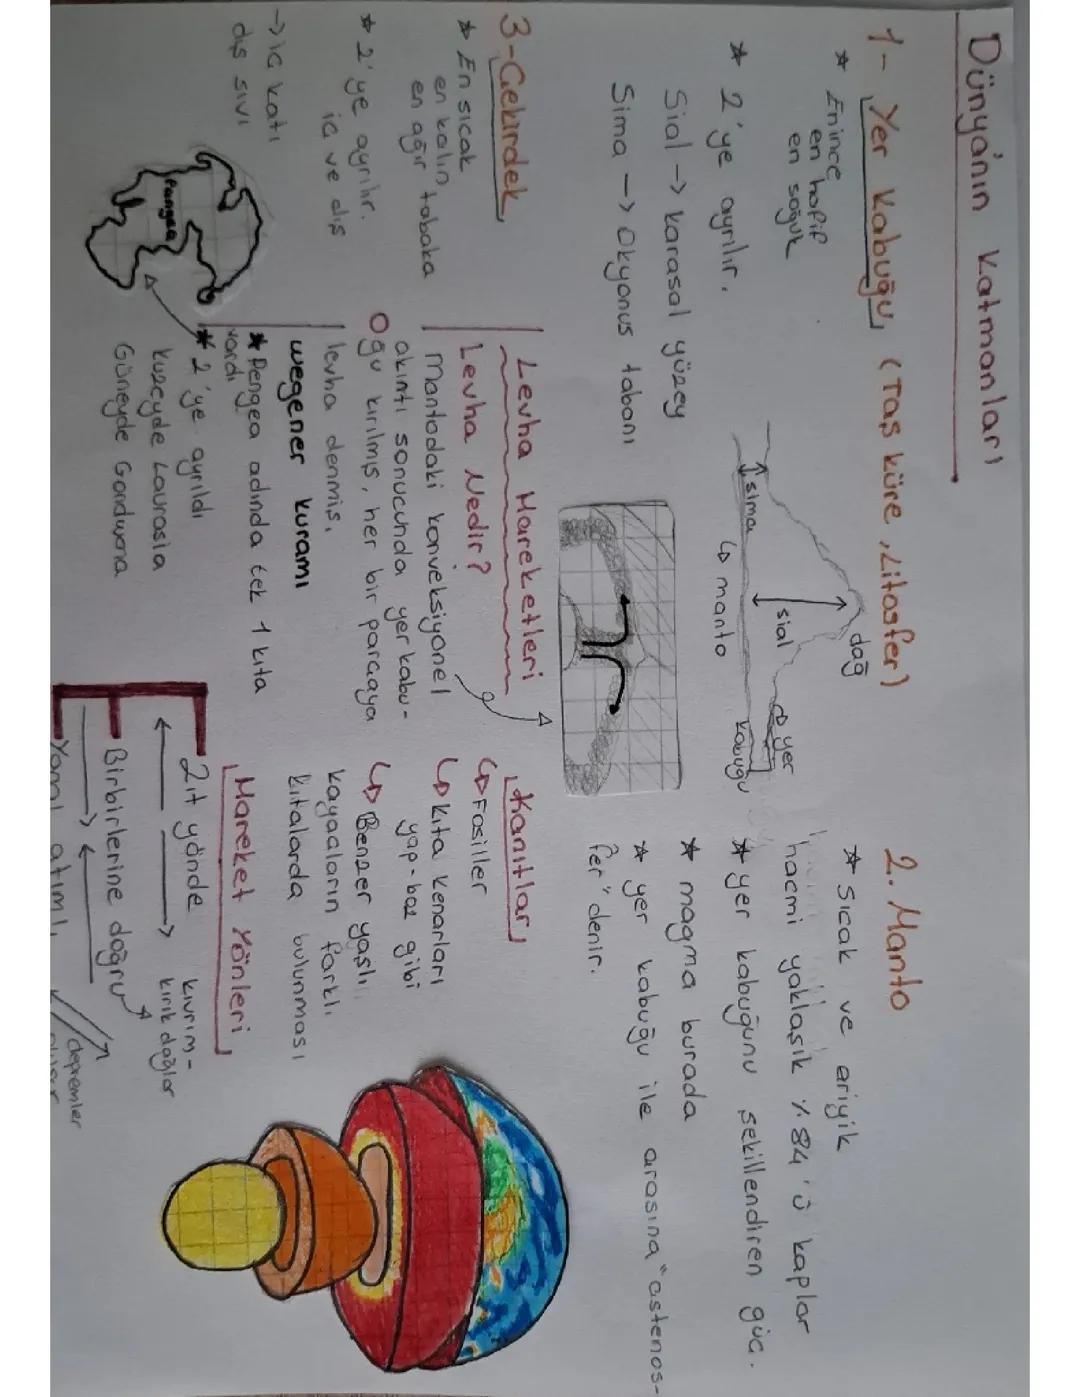 Dünya'nın Katmanları
1- Yer Kabuğu (Taş küre, Litosfer)
* En ince
en hafif
en soğuk
* 2'ye ayrılır.
Sial -> karasal yüzey
Sima -> Okyonus tabanı
dağ
sial
sima
manto
yer
kabuğu
2. Manto
* Sıcak ve eriyik
hacmi yaklaşık %84'ü kaplar
* yer kabuğunu şekillendiren güç.
* magma burada
* yer kabuğu ile arasına "astenos-
fer" denir.
3-Çekirdek
* En sıcak
en kalın
en ağır tabaka
* 2'ye ayrılır.
iç ve dış
-> iç katı
dış sıvı
Pangea
Levha Hareketleri
Levha Nedir?
Mantodaki konveksiyonel
akıntı sonucunda yer kabu-
ğu kırılmış, her bir parçaya
levha denmiş.
wegener kuramı
* Pengea adında tek 1 kıta
vardı
* 2'ye ayrıldı
kuzeyde Laurasia
Güneyde Gondwana
Kanıtlar
Fosiller
Kıta kenarları
yap-boz gibi
Benzer yaşlı
kayaaların farklı
kıtalarda bulunması
Hareket Yönleri
Zıt yönde
Birbirlerine doğru
kıvrım-
kırık dağlar
Yanal atımlı
depremler